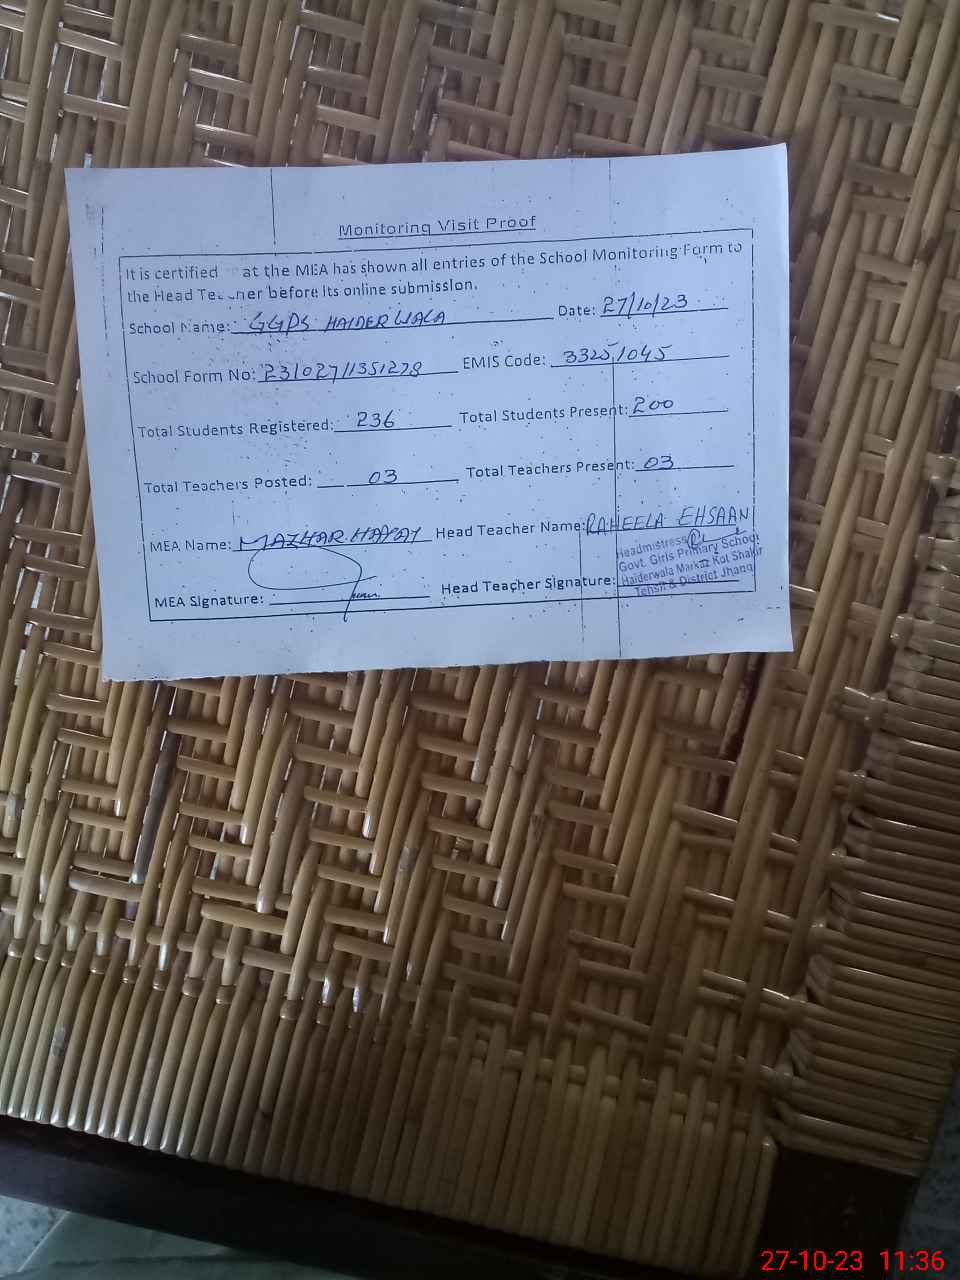 Monitoring Visit Proof
It is certified at the MEA has shown all entries of the School Monitoring Form to
the Head Teacher before its online submission.
School Name: GGPS HAIDER WALA Date: 27/10/23
School Form No: 23102711351278 EMIS Code: 33251045
Total Students Registered: 236 Total Students Present: 200
Total Teachers Posted: 03 Total Teachers Present: 03
MEA Name: MAZHAR HAYAT Head Teacher Name: RAHEELA EHSAAN
Headmistress
Govt. Girls Primary School
Haiderwala Markaz Kot Shakir
Tehsil & District Jhang
MEA Signature: Head Teacher Signature:
27-10-23 11:36